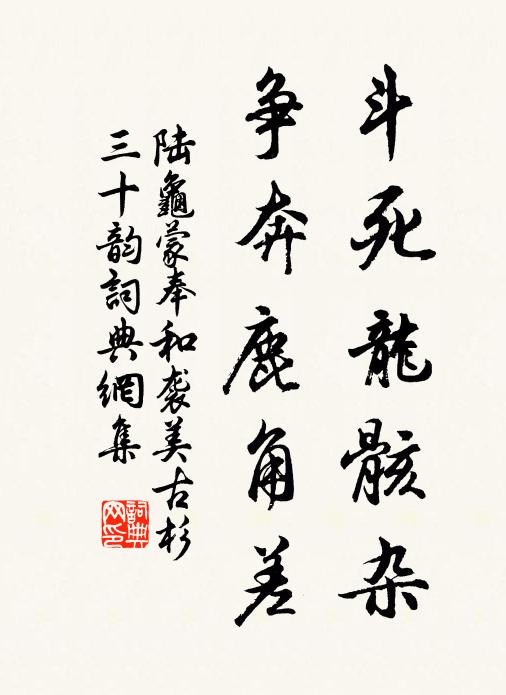 斗死龍骸杂
争奔鹿角差
陆龜蒙奉和袭美古杉
三十韵詞典網集
詞典
网印